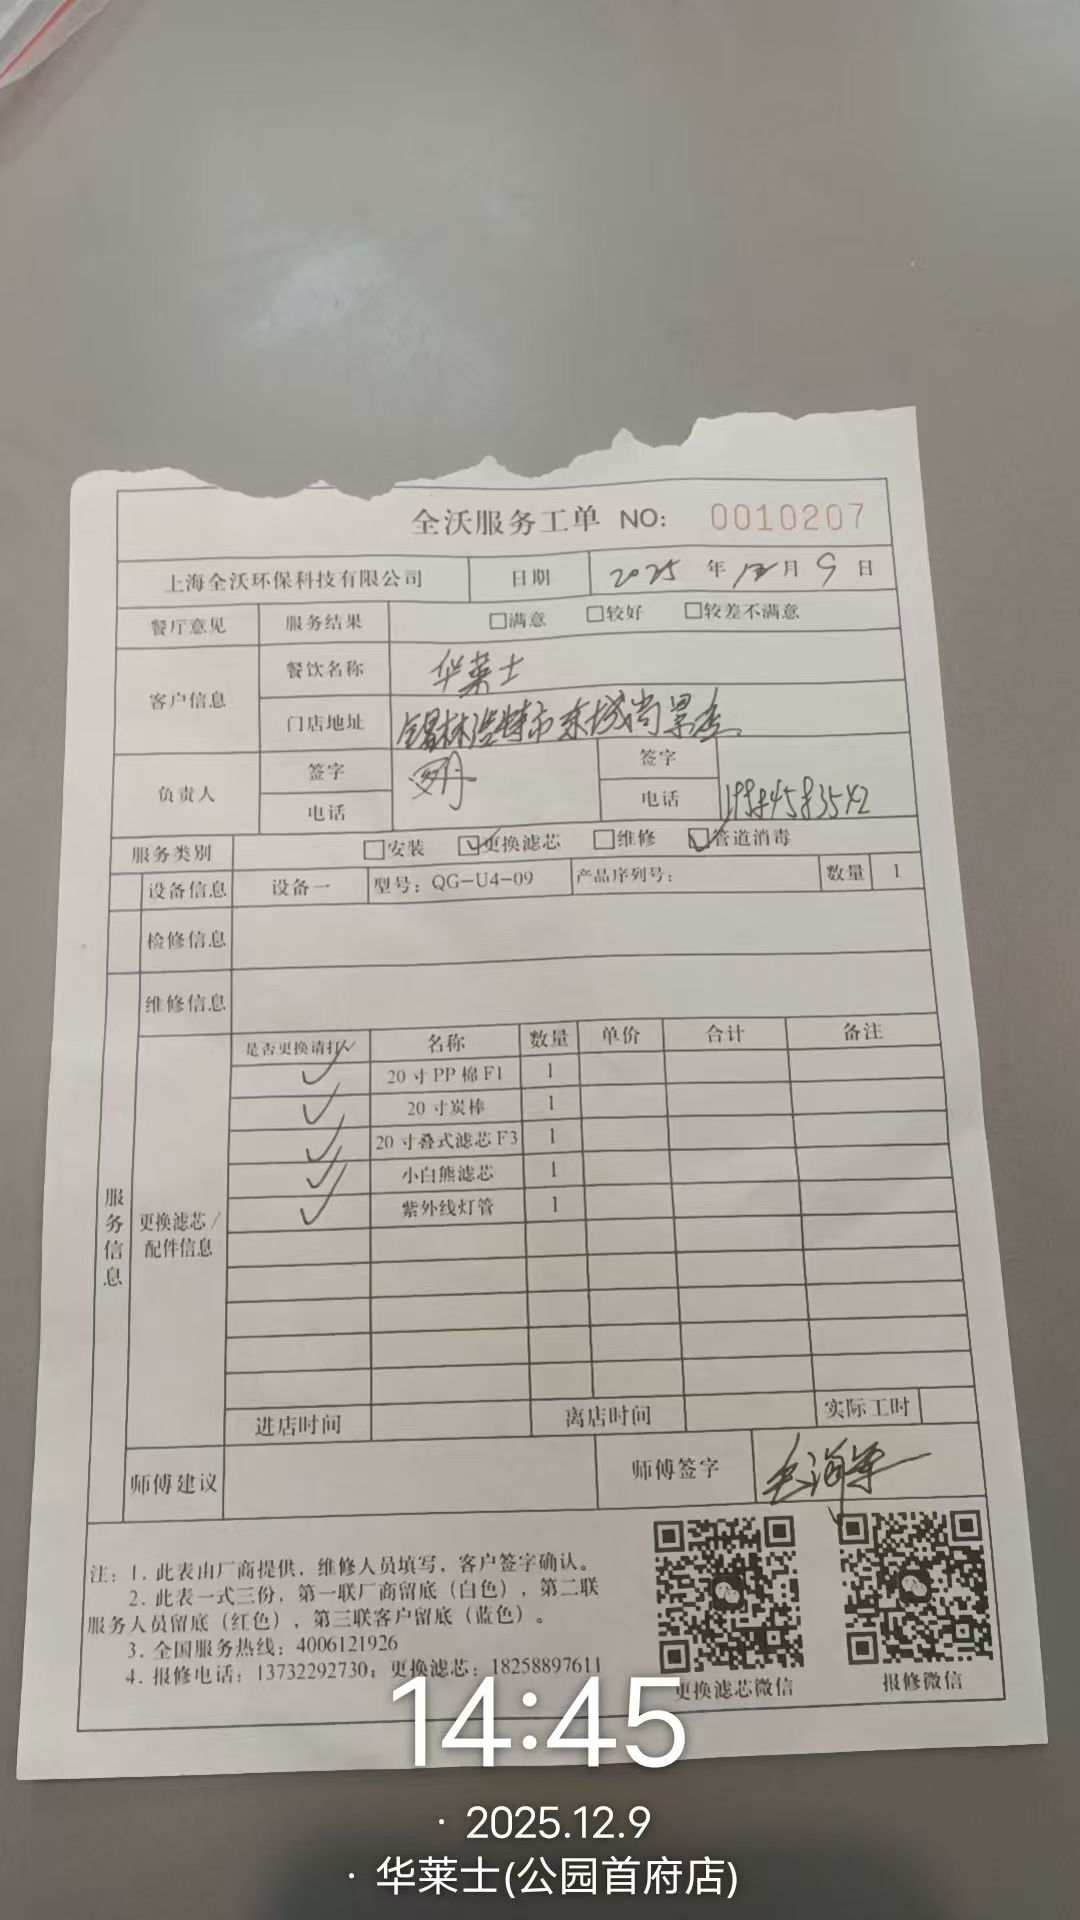 全沃服务工单 NO: 0010207
上海全沃环保科技有限公司 日期 2025 年 12 月 9 日
餐厅意见 服务结果 □满意 □较好 □较差不满意
客户信息 餐饮名称 华莱士
门店地址 锡林浩特市东城尚景店
负责人 签字 签字
电话 电话
服务类别 □安装 ☑更换滤芯 □维修 ☑管道消毒
设备信息 设备一 型号：QG-U4-09 产品序列号： 数量 1
检修信息
维修信息
服务信息
更换滤芯/配件信息
是否更换请打√ 名称 数量 单价 合计 备注
√ 20寸PP棉F1 1
√ 20寸炭棒 1
√ 20寸叠式滤芯F3 1
√ 小白熊滤芯 1
√ 紫外线灯管 1
进店时间 离店时间 实际工时
师傅建议 师傅签字
注：1. 此表由厂商提供，维修人员填写，客户签字确认。
2. 此表一式三份，第一联厂商留底（白色），第二联
服务人员留底（红色），第三联客户留底（蓝色）。
3. 全国服务热线：4006121926
4. 报修电话：13732292730；更换滤芯：18258897611
更换滤芯微信 报修微信
14:45
· 2025.12.9
· 华莱士(公园首府店)